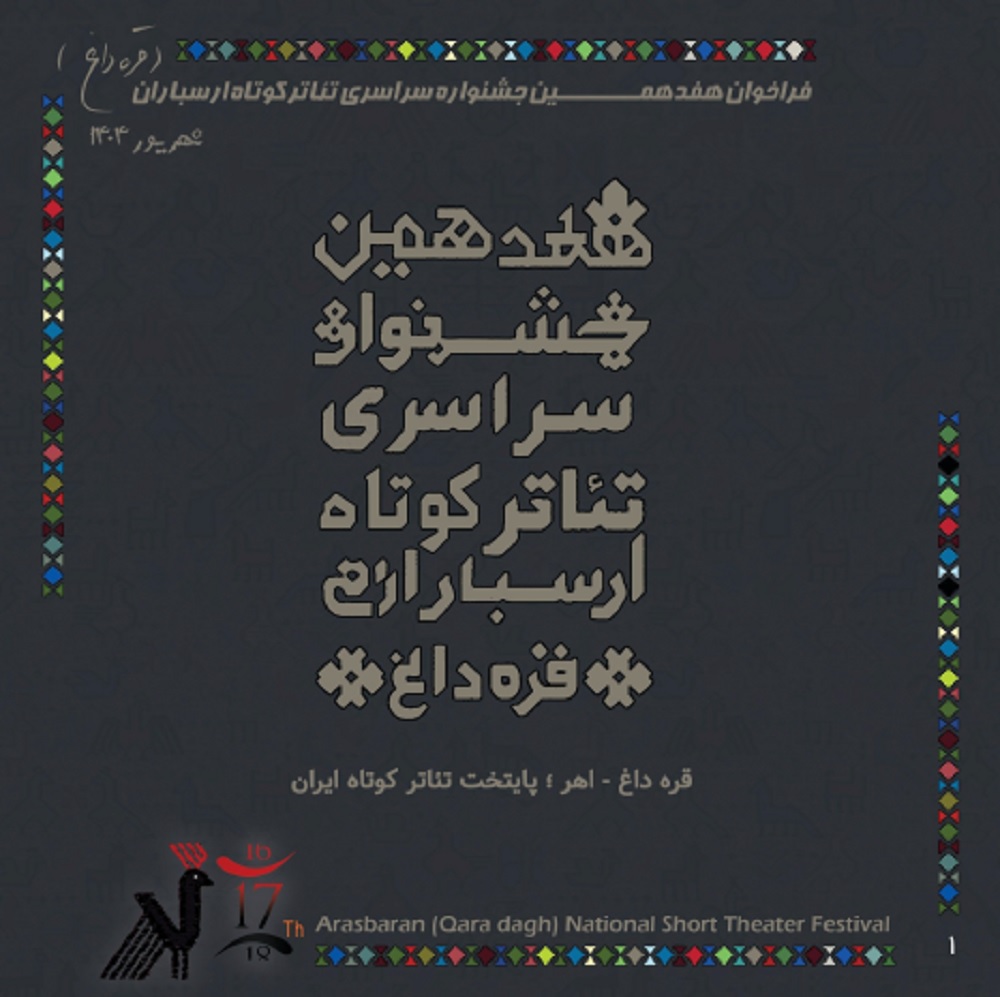 (قره داغ)
فراخوان هفدهمین جشنواره سراسری تئاتر کوتاه ارسباران
شهریور ۱۴۰۴
هفدهمین
جشنواره
سراسری
تئاتر کوتاه
ارسباران
قره داغ
قره داغ - اهر ؛ پایتخت تئاتر کوتاه ایران
16
17
18
Th Arasbaran (Qara dagh) National Short Theater Festival
۱